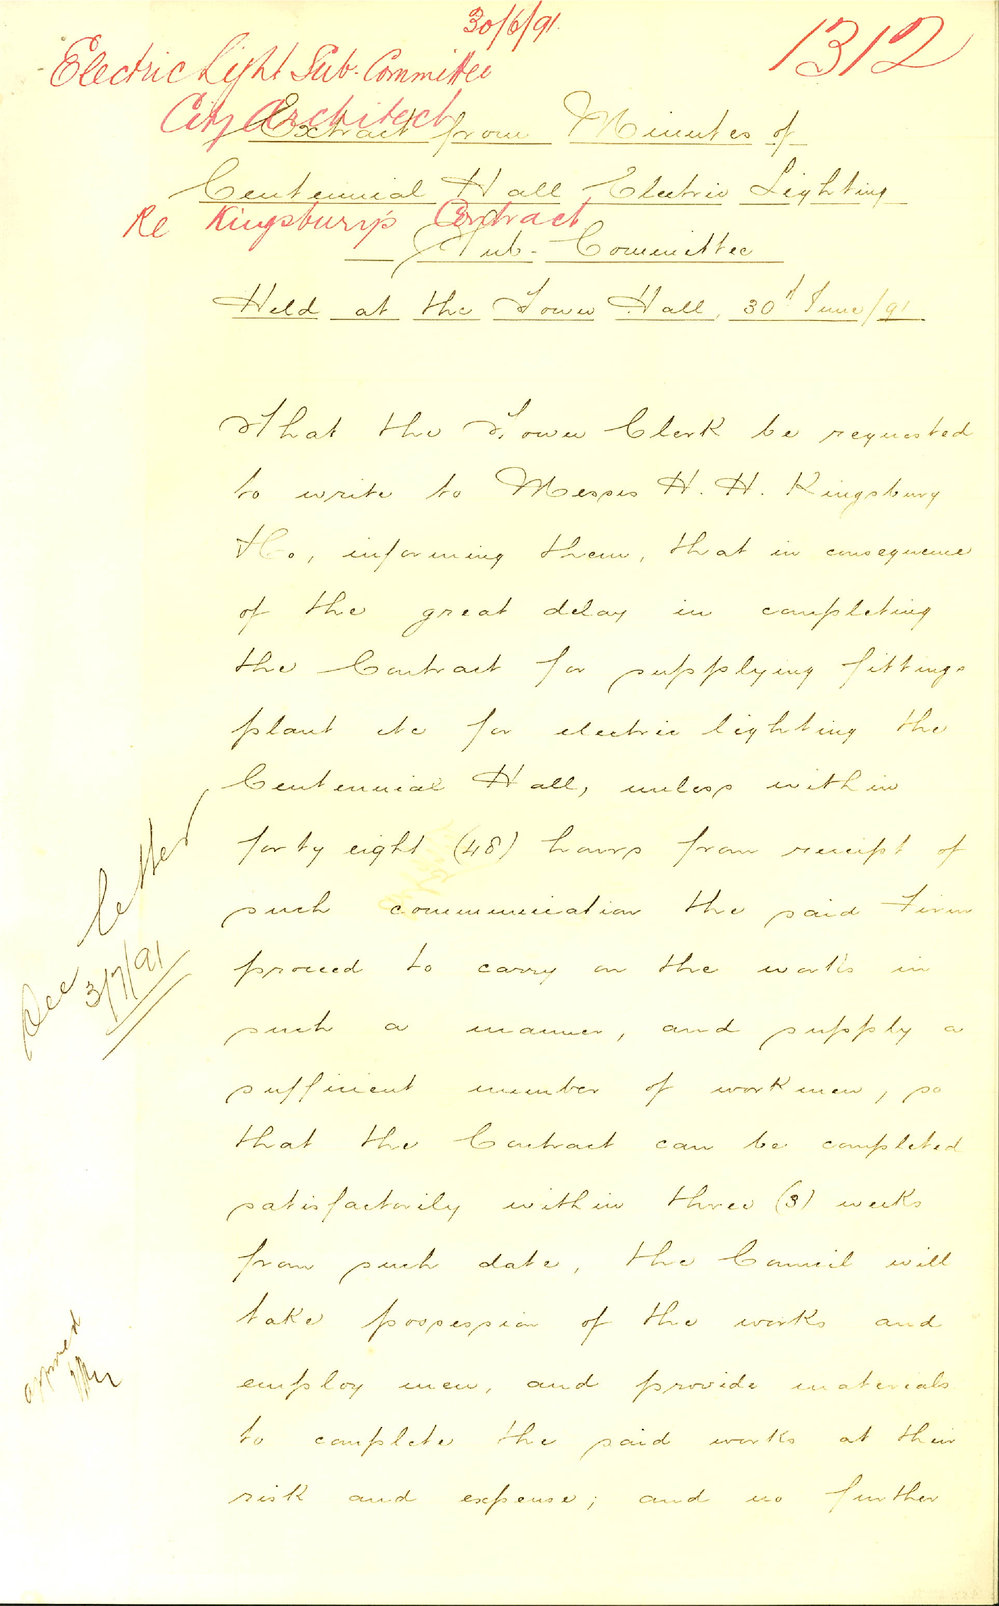 30/6/91
1312
Electric Light Sub. Committee
City Architect
Extract from Minutes of
Centennial Hall Electric Lighting
Re Kingsbury's Contract
Sub-Committee
Held at the Town Hall, 30th June/91
That the Town Clerk be requested
to write to Messrs H. H. Kingsbury
& Co, informing them, that in consequence
of the great delay in completing
the Contract for supplying fittings
plant etc for electric lighting the
Centennial Hall, unless within
forty eight (48) hours from receipt of
such communication the said Firm
proceed to carry on the works in
such a manner, and supply a
sufficient number of workmen, so
that the Contract can be completed
satisfactorily within three (3) weeks
from such date, the Council will
take possession of the works and
employ men, and provide materials
to complete the said works at their
risk and expense; and no further
See letter
3/7/91